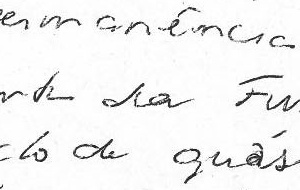 ermanência
nte da Fun
clo de quás